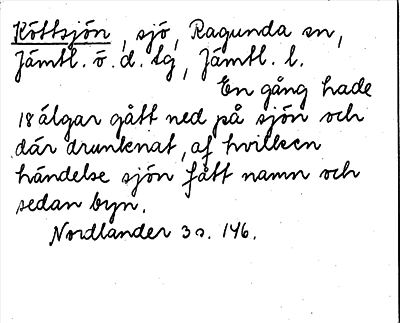 Köttsjön, sjö, Ragunda sn,
Jämtl. ö. d. lg, Jämtl. l.
En gång hade
18 älgar gått ned på sjön och
där drunknat, af hvilken
händelse sjön fått namn och
sedan byn.
Nordlander 3 s. 146.